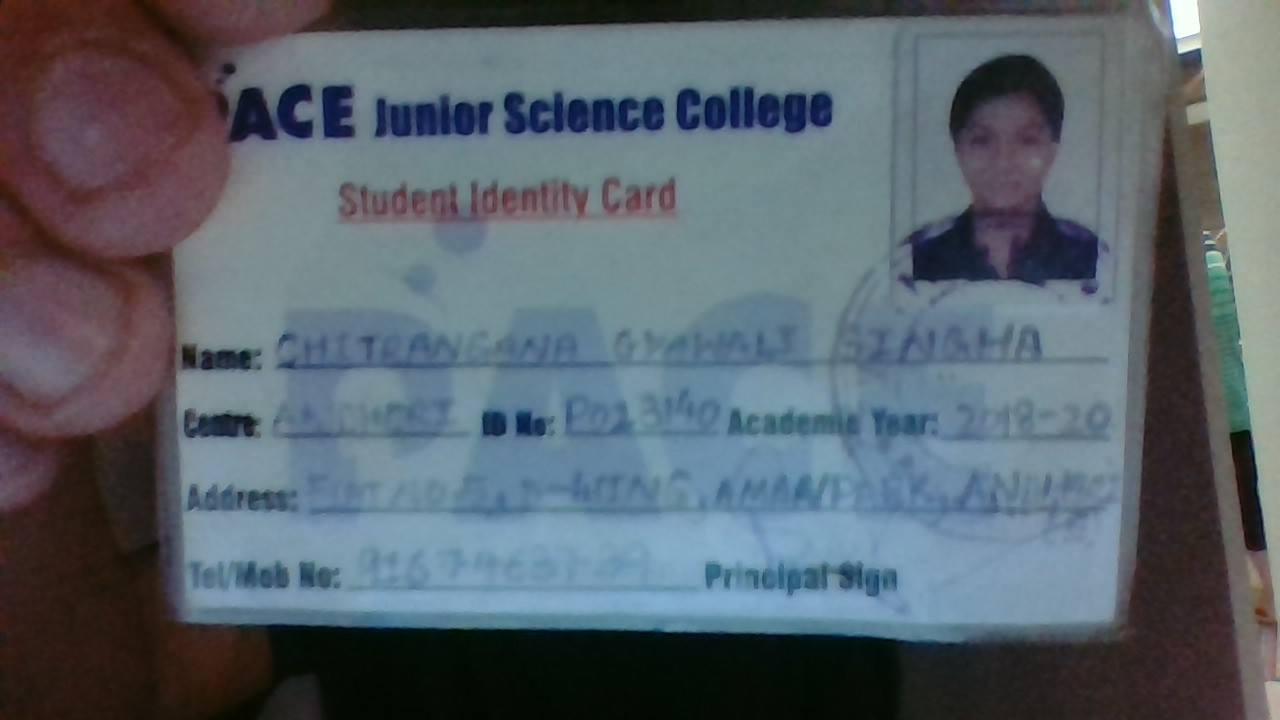 PACE Junior Science College
Student Identity Card
Name: CHITRANGANA GYAWALI SINGHA
Centre: ANDHERI ID No: P023140 Academic Year: 2018-20
Address: D-WING, AMAR PARK,
Tel/Mob No: Principal Sign